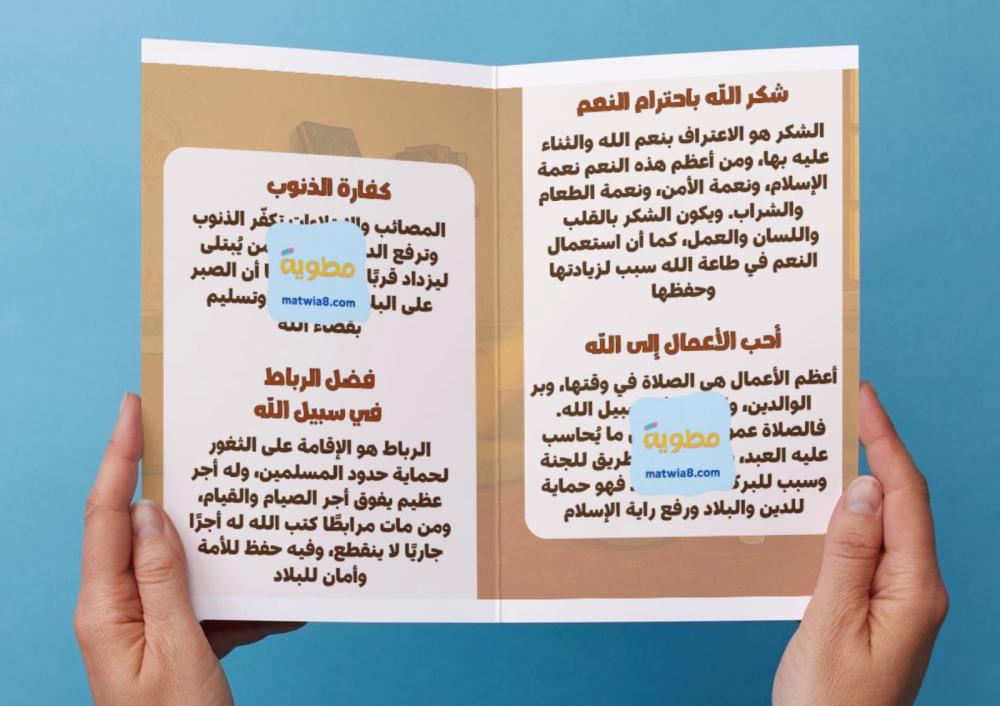 شكر الله باحترام النعم
الشكر هو الاعتراف بنعم الله والثناء
عليه بها، ومن أعظم هذه النعم نعمة
الإسلام، ونعمة الأمن، ونعمة الطعام
والشراب. ويكون الشكر بالقلب
واللسان والعمل، كما أن استعمال
النعم في طاعة الله سبب لزيادتها
وحفظها
أحب الأعمال إلى الله
أعظم الأعمال هي الصلاة في وقتها، وبر
الوالدين، سبيل الله.
فالصلاة ما يُحاسب
عليه العبد، طريق للجنة
وسبب فهو حماية
للدين والبلاد ورفع راية الإسلام
مطوية
matwia8.com
كفارة الذنوب
المصائب تكفّر الذنوب
وترفع يُبتلى
ليزداد قربًا أن الصبر
على وتسليم
بقضاء الله
مطوية
matwia8.com
فضل الرباط
في سبيل الله
الرباط هو الإقامة على الثغور
لحماية حدود المسلمين، وله أجر
عظيم يفوق أجر الصيام والقيام،
ومن مات مرابطًا كتب الله له أجرًا
جاريًا لا ينقطع، وفيه حفظ للأمة
وأمان للبلاد